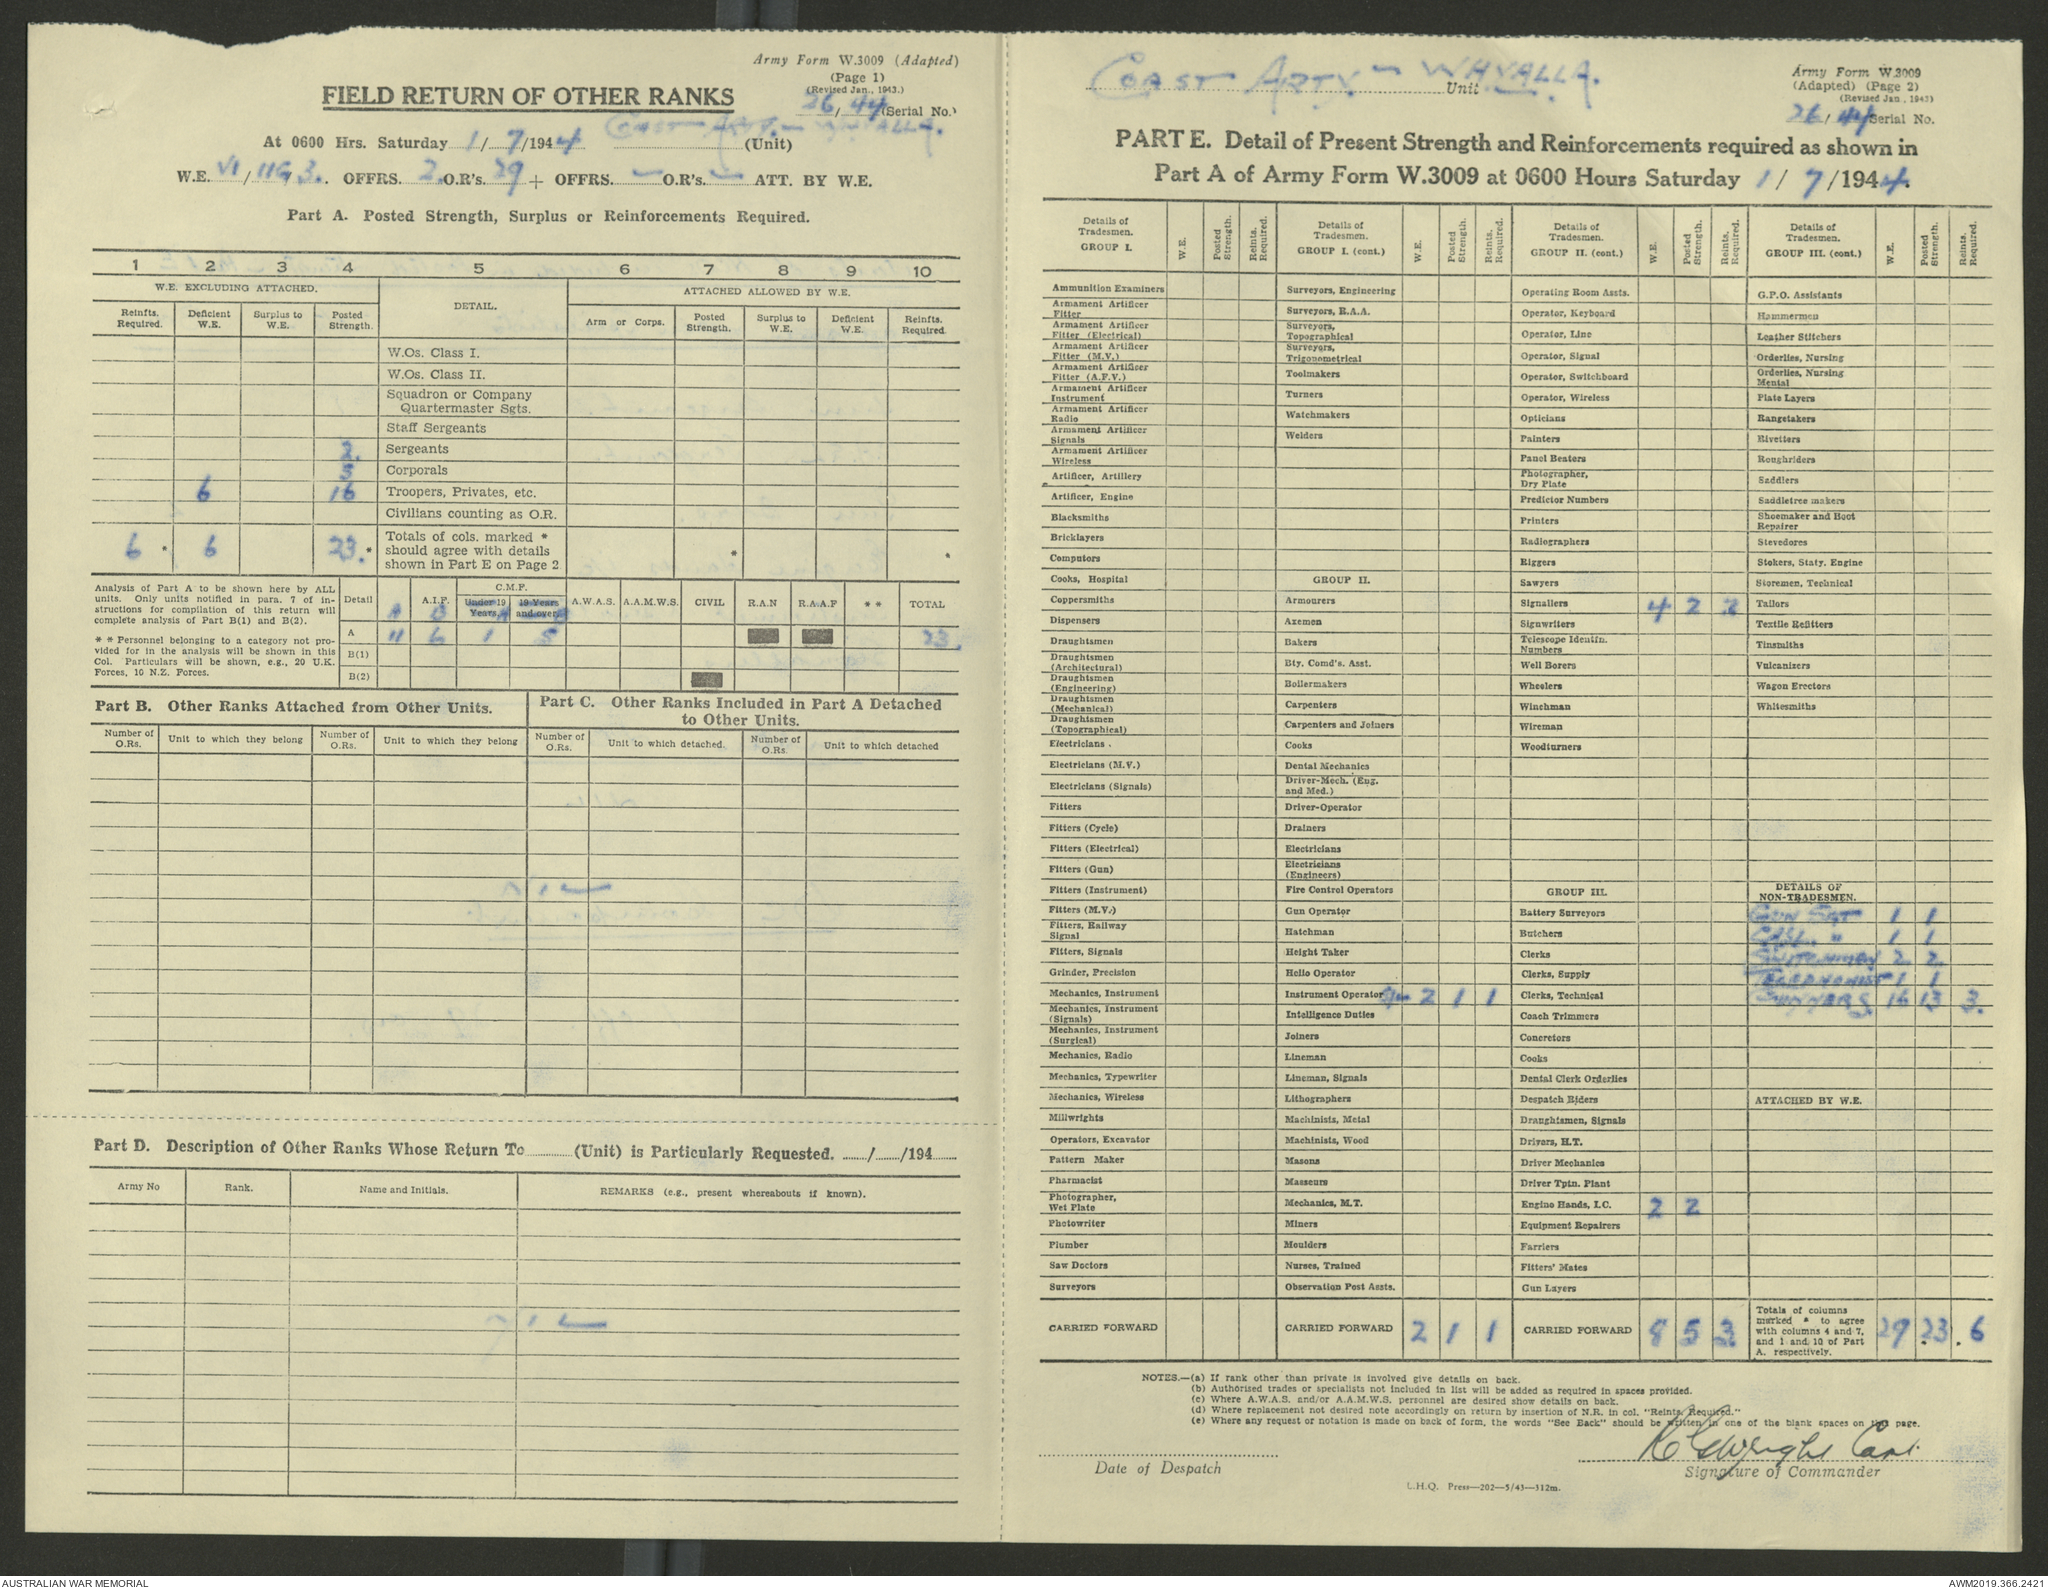 Army Form W.3009 (Adapted)
(Page 1)
(Revised Jan., 1943.)
FIELD RETURN OF OTHER RANKS
26/44 (Serial No.)
At 0600 Hrs. Saturday 1/7/1944 COAST ARTY - WHYALLA. (Unit)
W.E. VI / 11G 3. OFFRS. 2. O.R's. 29 + OFFRS. — O.R's. — ATT. BY W.E.
Part A. Posted Strength, Surplus or Reinforcements Required.
1 2 3 4 5 6 7 8 9 10
W.E. EXCLUDING ATTACHED. DETAIL. ATTACHED ALLOWED BY W.E.
Reinfts. Required. Deficient W.E. Surplus to W.E. Posted Strength. Arm or Corps. Posted Strength. Surplus to W.E. Deficient W.E. Reinfts. Required.
W.Os. Class I.
W.Os. Class II.
Squadron or Company
Quartermaster Sgts.
Staff Sergeants
2. Sergeants
5 Corporals
6 16 Troopers, Privates, etc.
Civilians counting as O.R.
6 * 6 23. * Totals of cols. marked *
should agree with details
shown in Part E on Page 2
* *
Analysis of Part A to be shown here by ALL
units. Only units notified in para. 7 of in-
structions for compilation of this return will
complete analysis of Part B(1) and B(2).
* * Personnel belonging to a category not pro-
vided for in the analysis will be shown in this
Col. Particulars will be shown, e.g., 20 U.K.
Forces, 10 N.Z. Forces.
Detail A.I.F. C.M.F. Under 19 Years. 19 Years and over. A.W.A.S. A.A.M.W.S. CIVIL R.A.N R.A.A.F * * TOTAL
A B A B
A 11 6 1 5 23.
B(1)
B(2)
Part B. Other Ranks Attached from Other Units.
Part C. Other Ranks Included in Part A Detached
to Other Units.
Number of O.Rs. Unit to which they belong Number of O.Rs. Unit to which they belong Number of O.Rs. Unit to which detached. Number of O.Rs. Unit to which detached
NIL
Part D. Description of Other Ranks Whose Return To (Unit) is Particularly Requested. / /194
Army No Rank. Name and Initials. REMARKS (e.g., present whereabouts if known).
NIL
COAST ARTY - WHYALLA. Unit
Army Form W.3009
(Adapted) (Page 2)
(Revised Jan., 1943)
26/44 Serial No.
PART E. Detail of Present Strength and Reinforcements required as shown in
Part A of Army Form W.3009 at 0600 Hours Saturday 1/7/1944.
Details of Tradesmen. GROUP I. W.E. Posted Strength. Reints. Required.
Ammunition Examiners
Armament Artificer Fitter
Armament Artificer Fitter (Electrical)
Armament Artificer Fitter (M.V.)
Armament Artificer Fitter (A.F.V.)
Armament Artificer Instrument
Armament Artificer Radio
Armament Artificer Signals
Armament Artificer Wireless
Artificer, Artillery
Artificer, Engine
Blacksmiths
Bricklayers
Computors
Cooks, Hospital
Coppersmiths
Dispensers
Draughtsmen
Draughtsmen (Architectural)
Draughtsmen (Engineering)
Draughtsmen (Mechanical)
Draughtsmen (Topographical)
Electricians .
Electricians (M.V.)
Electricians (Signals)
Fitters
Fitters (Cycle)
Fitters (Electrical)
Fitters (Gun)
Fitters (Instrument)
Fitters (M.V.)
Fitters, Railway Signal
Fitters, Signals
Grinder, Precision
Mechanics, Instrument
Mechanics, Instrument (Signals)
Mechanics, Instrument (Surgical)
Mechanics, Radio
Mechanics, Typewriter
Mechanics, Wireless
Millwrights
Operators, Excavator
Pattern Maker
Pharmacist
Photographer, Wet Plate
Photowriter
Plumber
Saw Doctors
Surveyors
CARRIED FORWARD
Details of Tradesmen. GROUP I. (cont.) W.E. Posted Strength. Reints. Required.
Surveyors, Engineering
Surveyors, R.A.A.
Surveyors, Topographical
Surveyors, Trigonometrical
Toolmakers
Turners
Watchmakers
Welders
GROUP II.
Armourers
Axemen
Bakers
Bty. Comd's. Asst.
Boilermakers
Carpenters
Carpenters and Joiners
Cooks
Dental Mechanics
Driver-Mech. (Eug. and Med.)
Driver-Operator
Drainers
Electricians
Electricians (Engineers)
Fire Control Operators
Gun Operator
Hatchman
Height Taker
Helio Operator
Instrument Operator 2 1 1
Intelligence Duties
Joiners
Lineman
Lineman, Signals
Lithographers
Machinists, Metal
Machinists, Wood
Masons
Masseurs
Mechanics, M.T.
Miners
Moulders
Nurses, Trained
Observation Post Assts.
CARRIED FORWARD 2 1 1
Details of Tradesmen. GROUP II. (cont.) W.E. Posted Strength. Reints. Required.
Operating Room Assts.
Operator, Keyboard
Operator, Line
Operator, Signal
Operator, Switchboard
Operator, Wireless
Opticians
Painters
Panel Beaters
Photographer, Dry Plate
Predictor Numbers
Printers
Radiographers
Riggers
Sawyers
Signallers 4 2 2
Signwriters
Telescope Identin. Numbers
Well Borers
Wheelers
Winchman
Wireman
Woodturners
GROUP III.
Battery Surveyors
Butchers
Clerks
Clerks, Supply
Clerks, Technical
Coach Trimmers
Concretors
Cooks
Dental Clerk Orderlies
Despatch Riders
Draughtsmen, Signals
Drivers, H.T.
Driver Mechanics
Driver Tptn. Plant
Engine Hands, I.C. 2 2
Equipment Repairers
Farriers
Fitters' Mates
Gun Layers
CARRIED FORWARD 8 5 3
Details of Tradesmen. GROUP III. (cont.) W.E. Posted Strength. Reints. Required.
G.P.O. Assistants
Hammermen
Leather Stitchers
Orderlies, Nursing
Orderlies, Nursing Mental
Plate Layers
Rangetakers
Rivetters
Roughriders
Saddlers
Saddletree makers
Shoemaker and Boot Repairer
Stevedores
Stokers, Staty. Engine
Storemen, Technical
Tailors
Textile Refitters
Tinsmiths
Vulcanizers
Wagon Erectors
Whitesmiths
DETAILS OF
NON-TRADESMEN.
GUN SGT 1 1
1 1
2 2
TELEPHONIST 1 1
GUNNERS 16 13 3.
ATTACHED BY W.E.
Totals of columns
marked * to agree
with columns 4 and 7,
and 1 and 10 of Part
A. respectively.
29 23 6
NOTES.—(a) If rank other than private is involved give details on back.
(b) Authorised trades or specialists not included in list will be added as required in spaces provided.
(c) Where A.W.A.S. and/or A.A.M.W.S. personnel are desired show details on back.
(d) Where replacement not desired note accordingly on return by insertion of N.R. in col. "Reints. Required."
(e) Where any request or notation is made on back of form, the words "See Back" should be written in one of the blank spaces on this page.
Wright Capt.
Date of Despatch
Signature of Commander
L.H.Q. Press—202—5/43—312m.
AUSTRALIAN WAR MEMORIAL
AWM2019.366.2421